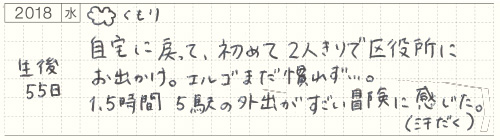 2018 水 くもり
自宅に戻って、初めて2人きりで区役所に
お出かけ。エルゴまだ慣れず…。
1.5時間 5駅の外出がすごい冒険に感じた。
(汗だく)
生後
55日